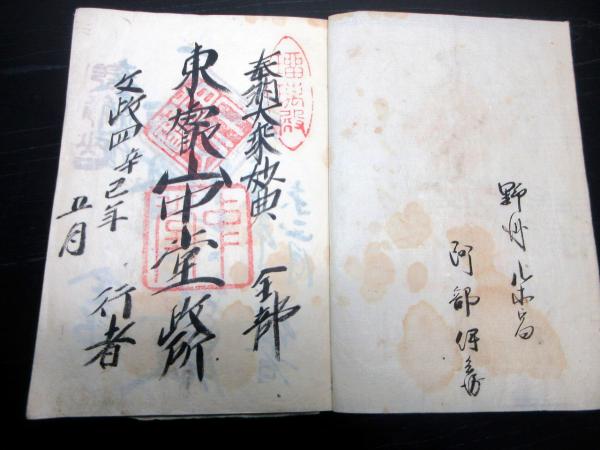 野州
阿部
瑠璃殿
奉納大乗妙典 全部
東叡山中堂政所
文政四辛巳年 行者
五月